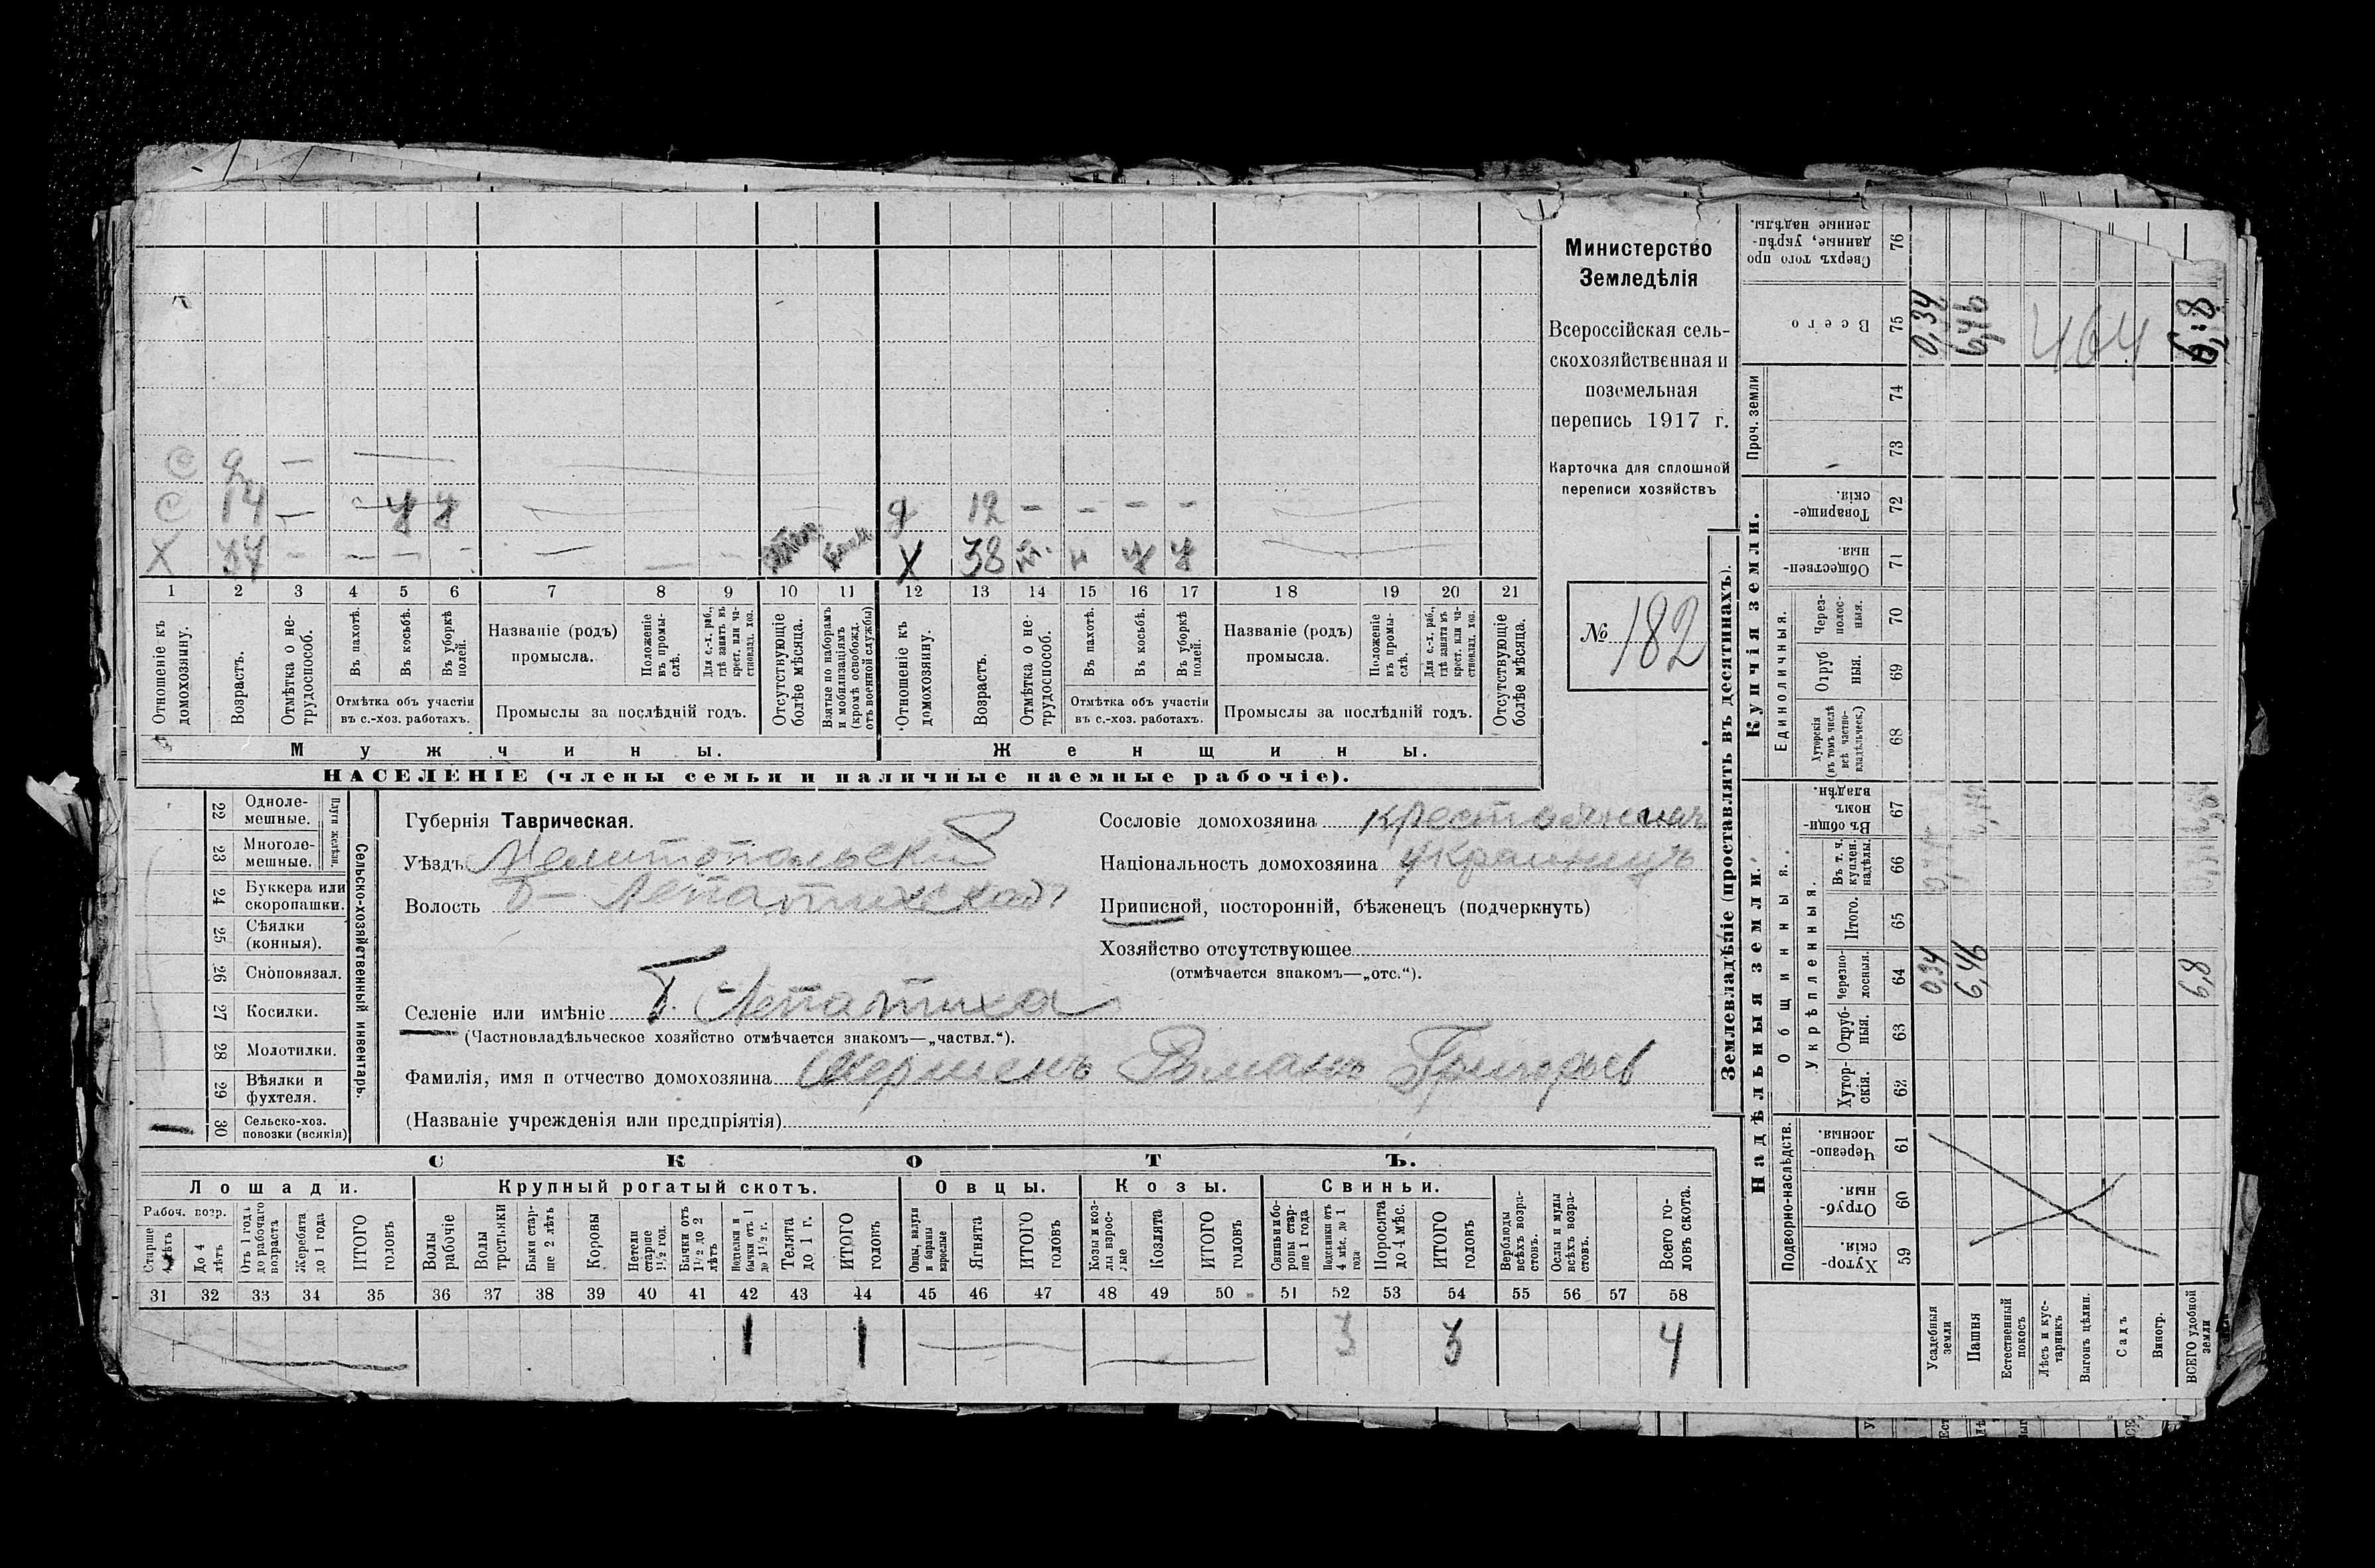 Министерство
Земледѣлія
Всероссійская сель-
скохозяйственная и
поземельная
перепись 1917 г.
Карточка для сплошной
переписи хозяйствъ
№ 182
С 9 —
С 14 — У У
Х 37 — — — — — —
д 12 — — — —
Х 38 н У У
1 2 3 4 5 6 7 8 9 10 11 12 13 14 15 16 17 18 19 20 21
Отношеніе къ домохозяину.
Возрастъ.
Отмѣтка о не-трудоспособ.
Въ пахотѣ.
Въ косьбѣ.
Въ уборкѣ полей.
Отмѣтка объ участіи въ с.-хоз. работахъ.
Названіе (родъ) промысла.
Положеніе въ промы-слѣ.
Для с.-х. раб., гдѣ занятъ въ крест. или ча-стновлад. хоз.
Промыслы за послѣдній годъ.
Отсутствующіе болѣе мѣсяца.
Взятые по наборамъ и мобилизаціямъ (кромѣ освобожд. отъ военной службы)
Отношеніе къ домохозяину.
Возрастъ.
Отмѣтка о не-трудоспособ.
Въ пахотѣ.
Въ косьбѣ.
Въ уборкѣ полей.
Отмѣтка объ участіи въ с.-хоз. работахъ.
Названіе (родъ) промысла.
Положеніе въ промы-слѣ.
Для с.-х. раб., гдѣ занята въ крест. или ча-стновлад. хоз.
Промыслы за послѣдній годъ.
Отсутствующіе болѣе мѣсяца.
Мужчины. Женщины.
НАСЕЛЕНІЕ (члены семьи и наличные наемные рабочіе).
22 Одноле-мешные.
23 Многоле-мешные.
Плуги желѣзн.
24 Буккера или скоропашки.
25 Сѣялки (конныя).
26 Сноповязал.
27 Косилки.
28 Молотилки.
29 Вѣялки и фухтеля.
30 Сельско-хоз. повозки (всякія)
Сельско-хозяйственный инвентарь.
Губернія Таврическая.
Уѣздъ Мелитопольскій
Волость Б-Лепатихская
Селеніе или имѣніе Б. Лепатиха
(Частновладѣльческое хозяйство отмѣчается знакомъ—„частвл.“).
Фамилія, имя и отчество домохозяина Романъ Григорьев
(Названіе учрежденія или предпріятія)
Сословіе домохозяина крестьянинъ
Національность домохозяина украинецъ
Приписной, посторонній, бѣженецъ (подчеркнуть)
Хозяйство отсутствующее
(отмѣчается знакомъ—„отс.“).
СКОТЪ.
Лошади. Крупный рогатый скотъ. Овцы. Козы. Свиньи.
Рабоч. возр.
Старше 4 лѣтъ
До 4 лѣтъ
Отъ 1 года до рабочаго возраста
Жеребята до 1 года
ИТОГО головъ
Волы рабочіе
Волы третьяки
Быки стар-ше 2 лѣтъ
Коровы
Нетели старше 1½ год.
Бычки отъ 1½ до 2 лѣтъ
Подтелки и бычки отъ 1 до 1½ г.
Телята до 1 г.
ИТОГО головъ
Овцы, валухи и бараны взрослые
Ягнята
ИТОГО головъ
Козы и коз-лы взрос-лые
Козлята
ИТОГО головъ
Свиньи и бо-ровы стар-ше 1 года
Подсвинки отъ 4 мѣс. до 1 года
Поросята до 4 мѣс.
ИТОГО головъ
Верблюды всѣхъ возра-стовъ.
Ослы и мулы всѣхъ возра-стовъ.
Всего го-ловъ скота.
31 32 33 34 35 36 37 38 39 40 41 42 43 44 45 46 47 48 49 50 51 52 53 54 55 56 57 58
1 1 3 3 4
Землевладѣніе (проставлять въ десятинахъ).
Надѣльныя земли. Купчія земли.
Подворно-наслѣдств.
Общинныя.
Укрѣпленныя.
Единоличныя.
Проч. земли
Хутор-скія. 59
Отруб-ныя. 60
Черезпо-лосныя. 61
Хутор-скія. 62
Отруб-ныя. 63
Черезпо-лосныя. 64
Итого. 65
Въ т. ч. куплен. надѣлы. 66
Въ общи-номъ владѣн. 67
Хуторскія (въ томъ числѣ всѣ частно-владѣльческ.) 68
Отруб ныя. 69
Через-полос-ныя. 70
Обществен-ныя. 71
Товарище-скія. 72
73
74
Всего 75
Сверхъ того про данные, укрѣп-ленные надѣлы. 76
Усадебныя земли 0,34 0,34
Пашня 6,46 6,46
Естественный покосъ
Лѣсъ и кус-тарникъ
Выгонъ цѣлин.
Садъ
Виногр.
ВСЕГО удобной земли 6,8 6,8
464